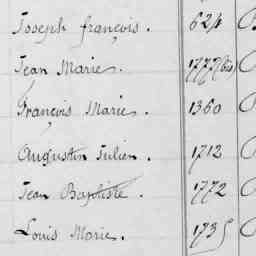 Joseph françois. 624
Jean Marie. 1777(bis)
François Marie. 1360
Augustin Julien. 1712
Jean Baptiste. 1772
Louis Marie. 1735